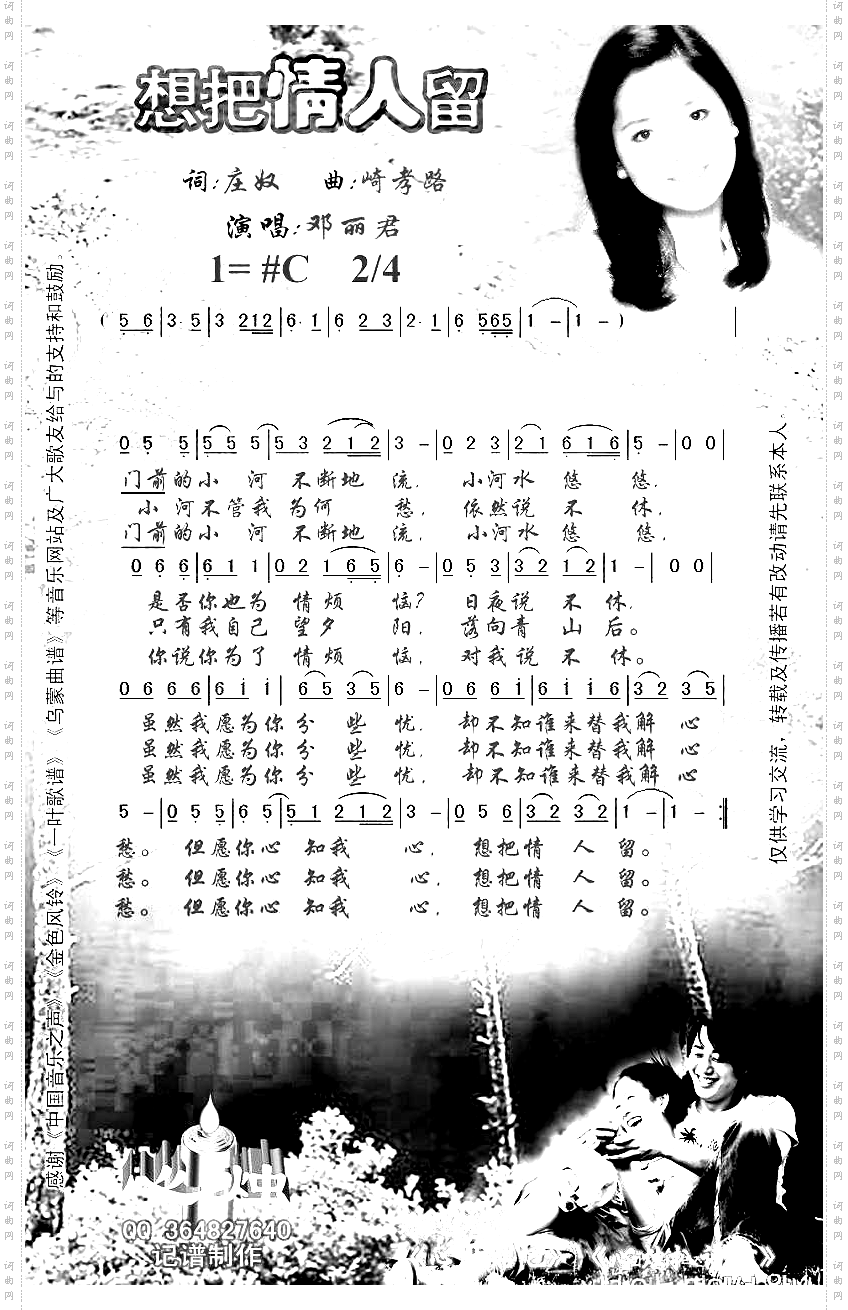 想把情人留
词:庄奴 曲:崎孝路
演唱:邓丽君
1= #C 2/4
( 5 6 | 3· 5 | 3 212 | 6· 1 | 6 2 3 | 2· 1 | 6 565 | 1 – | 1 – ) |
0 5 5 | 5 5 5 | 5 3 2 1 2 | 3 – | 0 2 3 | 2 1 6 1 6 | 5 – | 0 0 |
门前的小 河 不断地 流, 小河水 悠 悠,
小 河不管我 为何 愁, 依然说 不 休,
门前的小 河 不断地 流, 小河水 悠 悠,
0 6 6 | 6 1 1 | 0 2 1 6 5 | 6 – | 0 5 3 | 3 2 1 2 | 1 – | 0 0 |
是否你也为 情烦 恼? 日夜说 不 休,
只有我自己 望夕 阳, 落向青 山 后。
你说你为了 情烦 恼, 对我说 不 休。
0 6 6 6 | 6 i i | 6 5 3 5 | 6 – | 0 6 6 i | 6 i i 6 | 3 2 3 5 |
虽然我愿为你分 些 忧, 却不知谁来替我解 心
虽然我愿为你分 些 忧, 却不知谁来替我解 心
虽然我愿为你分 些 忧, 却不知谁来替我解 心
5 – | 0 5 5 | 6 5 | 5 1 2 1 2 | 3 – | 0 5 6 | 3 2 3 2 | 1 – | 1 – :||
愁。 但愿你心 知我 心, 想把情 人 留。
愁。 但愿你心 知我 心, 想把情 人 留。
愁。 但愿你心 知我 心, 想把情 人 留。
感谢《中国音乐之声》《金色风铃》《一叶歌谱》《乌蒙曲谱》等音乐网站及广大歌友给与的支持和鼓励。
仅供学习交流，转载及传播若有改动请先联系本人
QQ 364827640
记谱制作
词曲网